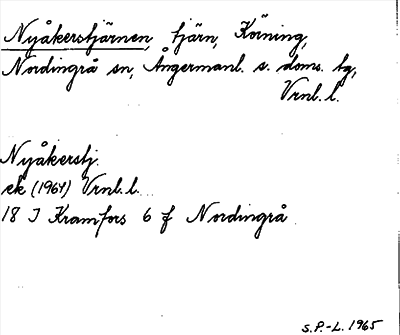 Nyåkerstjärnen, tjärn, Körning,
Nordingrå sn, Ångermanl. s. doms. tg,
Vrnl. l.
Nyåkerstj.
ek (1964) Vrnl. l.
18 I Kramfors 6 f Nordingrå
S.P.-L. 1965